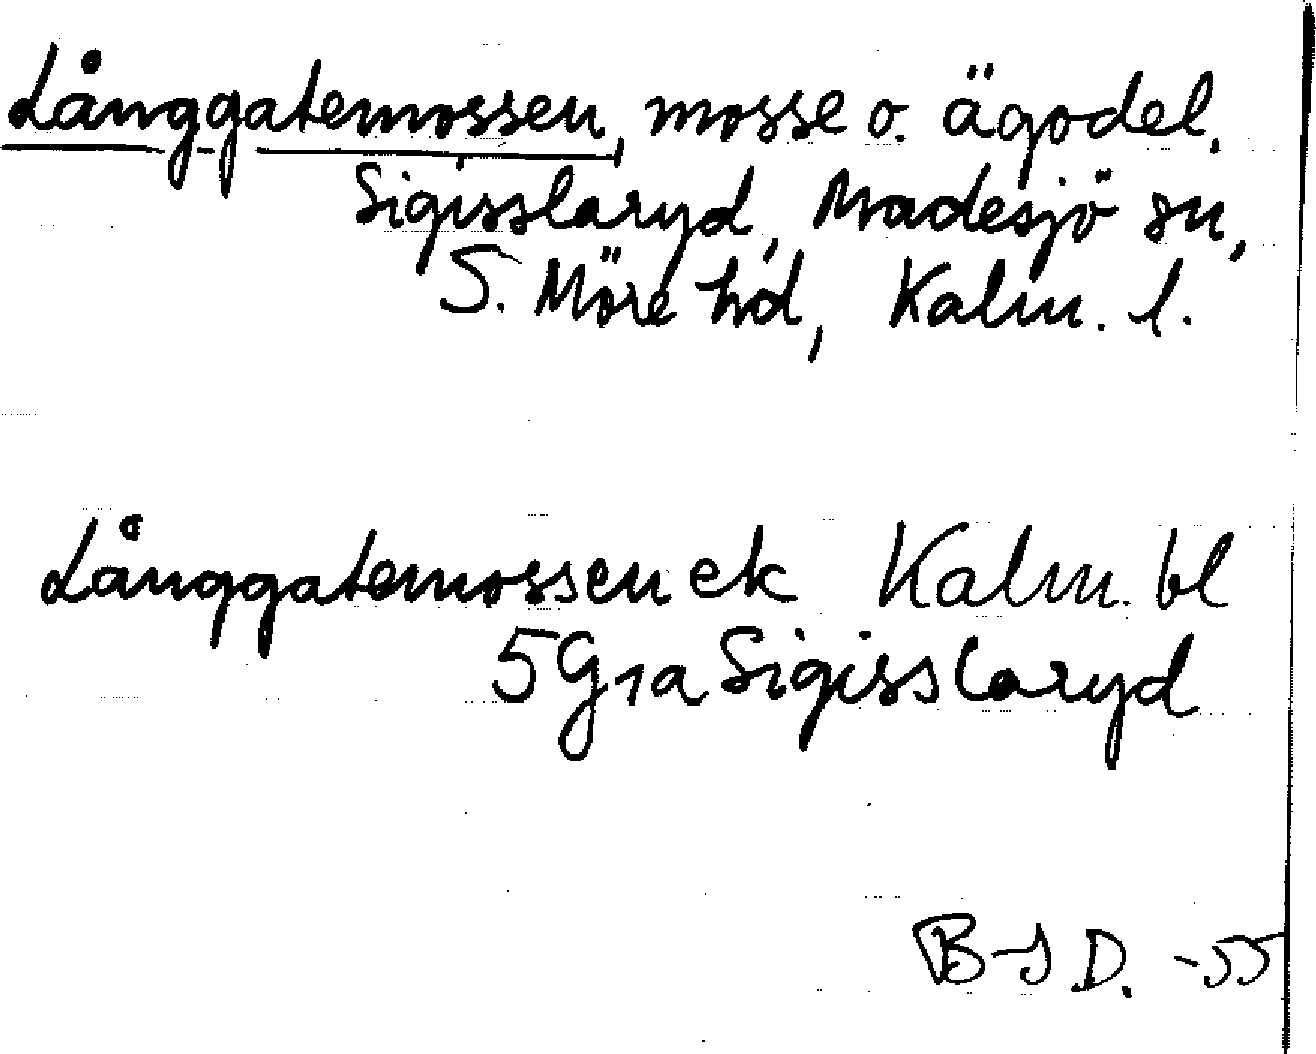 Långgatemossen, mosse o. ägodel,
Sigisslaryd, Madesjö sn,
S. Möre hd, Kalm. l.
Långgatemossen ek Kalm. bl
5G1a Sigisslaryd
B-J D. -55